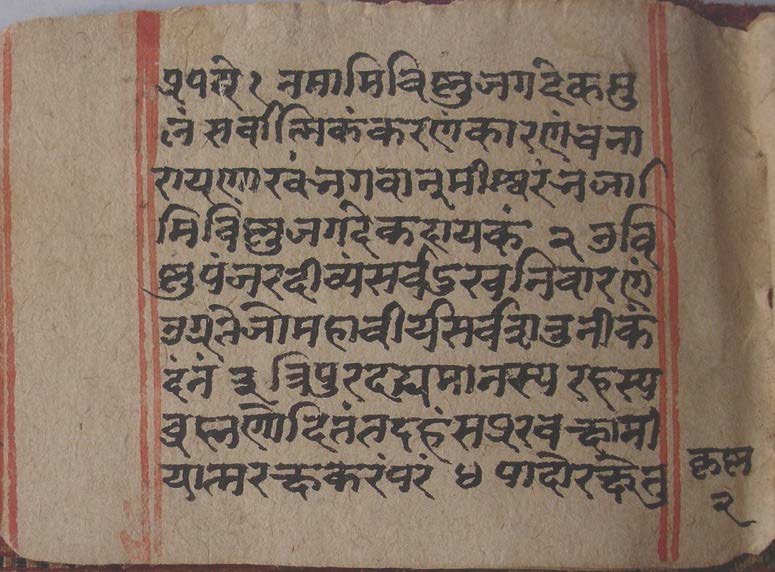 प्रपद्ये १ नमामि विष्णु जगदेकमु
लं सर्वात्मिकं करणं कारणं च ना
रायणारवं नगवानुमीश्वरं नजा
मि विष्णु जगदेकदायकं २ उ वि
ष्णुपंजरदीव्यं सर्वऽरवनिवारणं
उग्रतेजो महावीर्य सर्वशत्रुनीकं
दंनं ३ त्रिपुरदह्यमानस्य रहस्य
ब्रह्मणोदितं तदहं संप्ररवक्षामी
यात्मरक्षकरं परं ४ पादो रक्षेतु
२